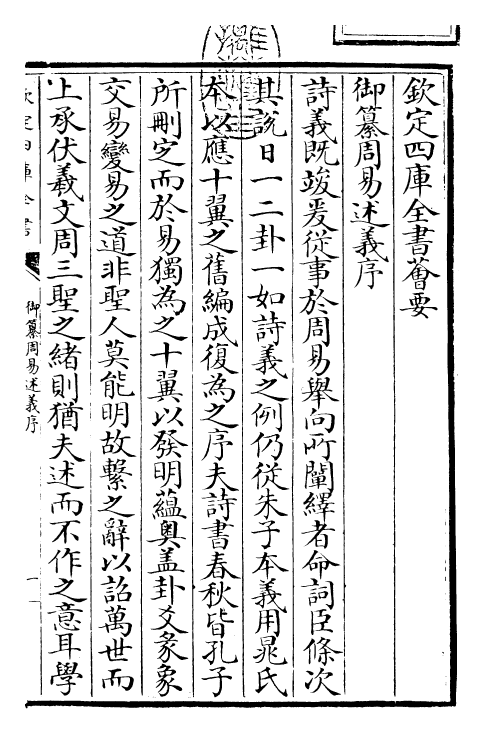 欽定四庫全書薈要
御纂周易述義序
詩義既竣爰從事於周易舉向所闡繹者命詞臣條次
其說日一二卦一如詩義之例仍從朱子本義用晁氏
本以應十翼之舊編成復為之序夫詩書春秋皆孔子
所刪定而於易獨為之十翼以發明蘊奥盖卦爻彖象
交易變易之道非聖人莫能明故繫之辭以詔萬世而
上承伏羲文周三聖之緒則猶夫述而不作之意耳學
欽定四庫全書
御纂周易述義序
一